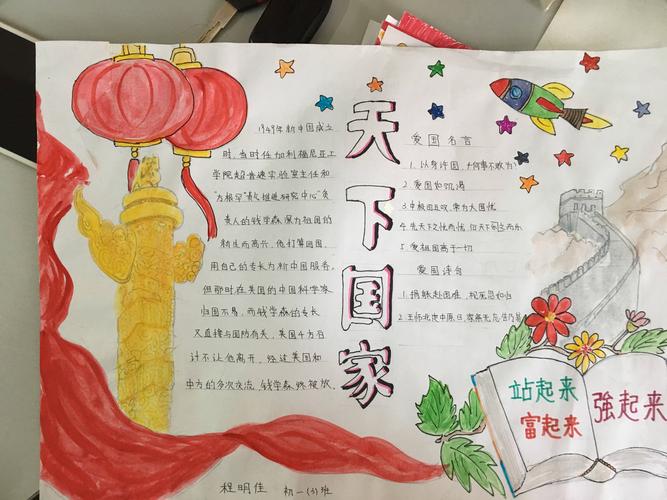 天下国家
1949年新中国成立
时,当时任加利福尼亚工
学院超音速实验室主任和
"古根罕喷气推进研究中心"负
责人的钱学森深为祖国的
新生而高兴,他打算回国,
用自己的专长为新中国服务。
但那时在美国的中国科学家
归国不易,而钱学森的专长
又直接与国防有关,美国千方百
计不让他离开,经过美国和
中方的多次交流,钱学森终被放。
爱国名言
1. 以身许国,何事不敢为?
2. 爱国如饥渴
3. 中夜四五叹,常为大国忧
4. 先天下之忧而忧,后天下之乐而乐
5. 爱祖国高于一切
爱国诗句
1. 捐躯赴国难,视死忽如归
2. 王师北定中原日,家祭无忘告乃翁
站起来
富起来
強起来
程明佳 初一(3)班